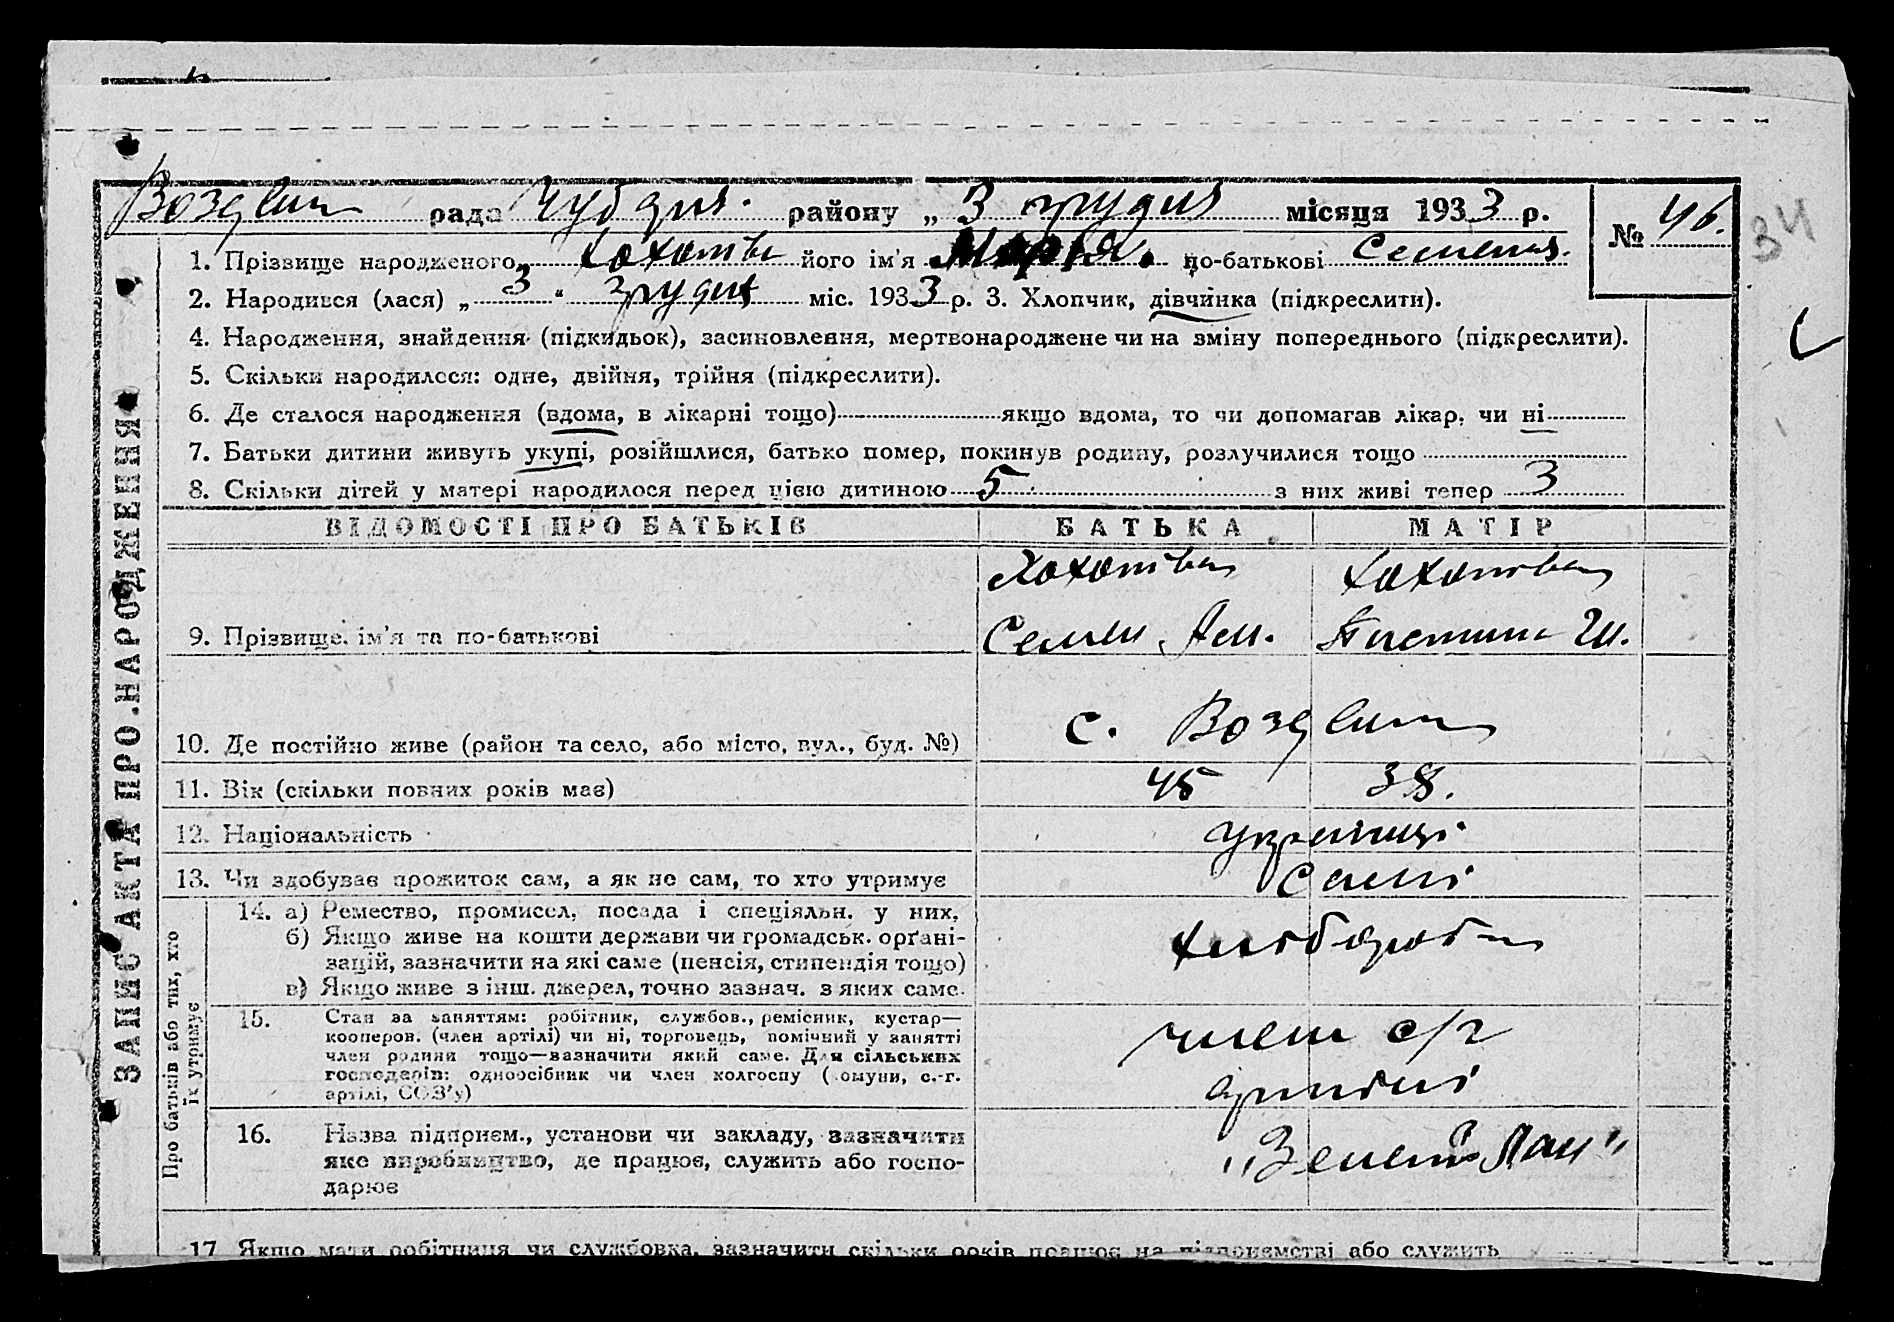 рада району „ 3 грудня місяця 1933 р.
№ 46.
34
1. Прізвище народженого його ім'я Марія. по-батькові Семенів.
2. Народився (лася) „ 3 " грудня міс. 1933 р. 3. Хлопчик, дівчинка (підкреслити).
4. Народження, знайдення (підкидьок), засиновлення, мертвонароджене чи на зміну попереднього (підкреслити).
5. Скільки народилося: одне, двійня, трійня (підкреслити).
6. Де сталося народження (вдома, в лікарні тощо) якщо вдома, то чи допомагав лікар, чи ні
7. Батьки дитини живуть укупі, розійшлися, батько помер, покинув родину, розлучилися тощо
8. Скільки дітей у матері народилося перед цією дитиною 5 з них живі тепер 3
ВІДОМОСТІ ПРО БАТЬКІВ БАТЬКА МАТІР
9. Прізвище, ім'я та по-батькові Семен
10. Де постійно живе (район та село, або місто, вул., буд. №) с.
11. Вік (скільки повних років має) 45 38.
12. Національність українці
13. Чи здобуває прожиток сам, а як не сам, то хто утримує Самі
14. а) Ремество, промисел, посада і спеціяльн. у них,
б) Якщо живе на кошти держави чи громадськ. орґані-
зацій, зазначити на які саме (пенсія, стипендія тощо)
в) Якщо живе з інш. джерел, точно зазнач. з яких саме.
хлібороби
15. Стан за заняттям: робітник, службов., ремісник, кустар—
кооперов. (член артілі) чи ні, торговець, помічний у занятті
член родини тощо—зазначити який саме. Для сільських
господарів: одноосібник чи член колгоспу (комуни, с.-г.
артілі, СОЗ'у)
член с/г
артілі
16. Назва підприєм., установи чи закладу, зазначити
яке виробництво, де працює, служить або госпо-
дарює
„Зелений Лан"
17. Якщо мати робітниця чи службовка, зазначити скільки років працює на підприємстві або служить
ЗАПИС АКТА ПРО НАРОДЖЕННЯ
Про батьків або тих, хто
їх утримує